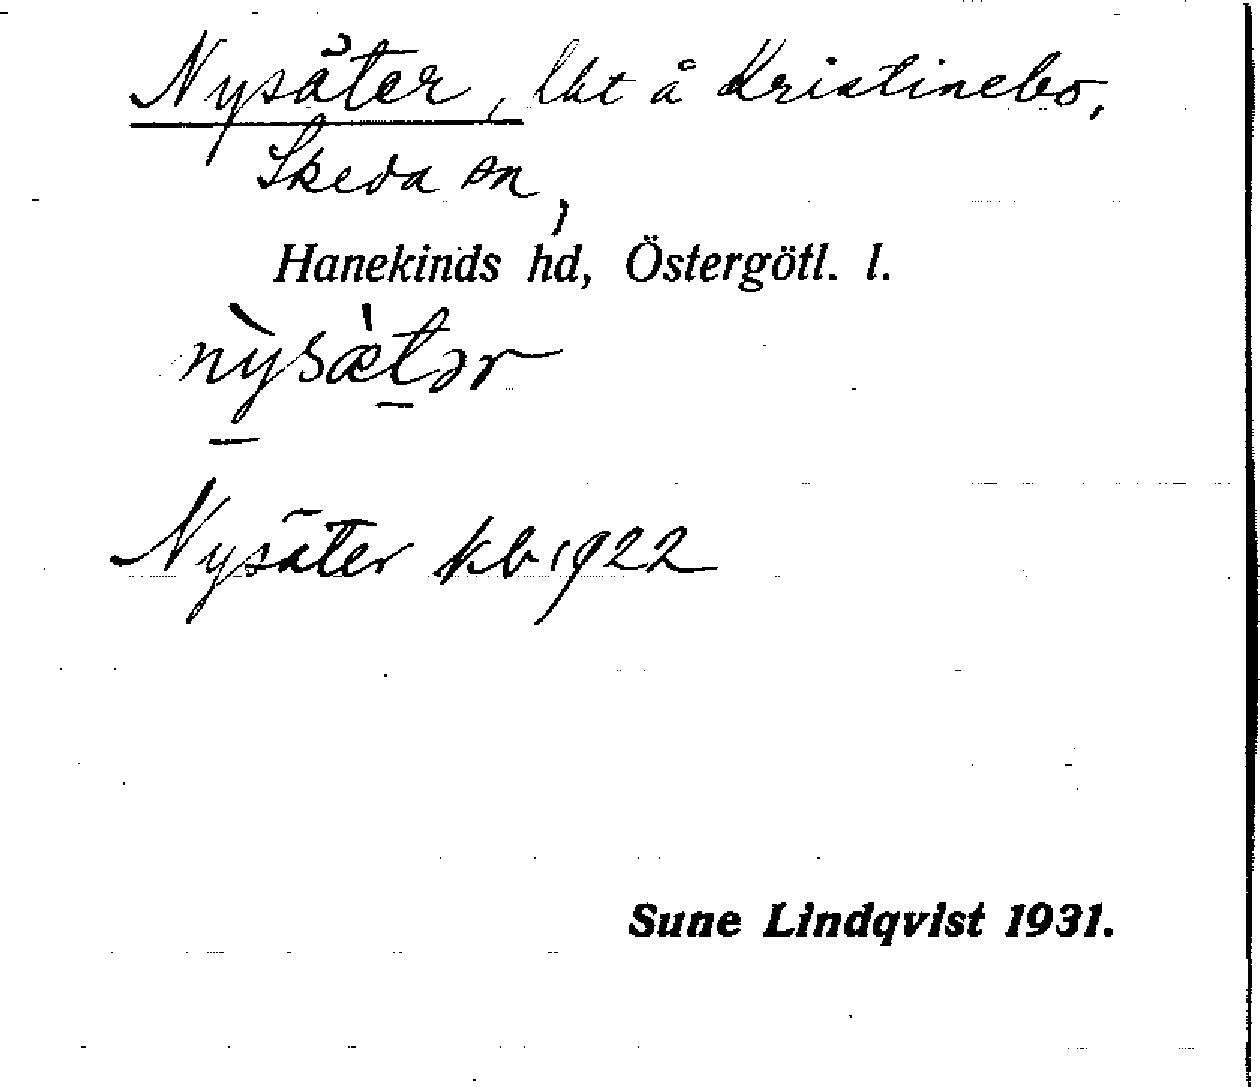 Nysäter, lht å Kristinebo,
Skeda sn,
Hanekinds hd, Östergötl. l.
nỳsæ̀tər
Nysäter kb 1922
Sune Lindqvist 1931.